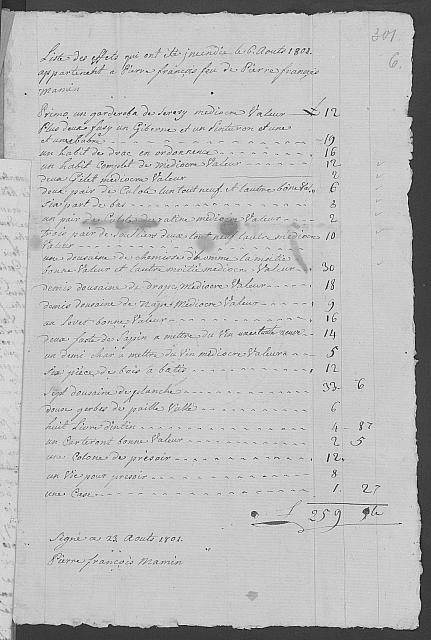 301.
6.
Liste des effets qui ont été incendie le 6 Aouts 1801.
appartenent a Pierre françois feu de Pierre françois
Mamin
Primo, un garderoba de mediocre Valeur 12
Plus deux fusy un Giberne et un sinturon et une
et une sabre 19
un habit de drac, en ordonnence 16
un habit Complet de Mediocre Valeur 12
deux Gilet mediocre Valeur 2
deux pair de Culote lun tout neuf et lautre bone Val. 6
six part de bas 8
un pair de mediocre Valeur 2
Trois pair de Souliers deux tout neuf lautre mediocre 10
Valeur
une dousaine de chemise d'homme la moitie
bonne Valeur et lautre moitié mediocre Valeur 30
demis dousaine de draps, mediocre Valeur 18
demis dousaine de Napes Mediocre Valeur 9
un bonne Valeur 16
deux de Sapin a mettre du Vin 14
un demi char à mettre du vin mediocre Valeur 5
six pièce de bois à batir 12
Sept dousaine de planche 33 6
douse gerbes de paille 6
huit Livre 4 87
un bonne Valeur 2 5
une Colone de presoir 12
un Vic pour presoir 8
une 1 27
L 259
Signé ce 23 Aouts 1801.
Pierre françois Mamin